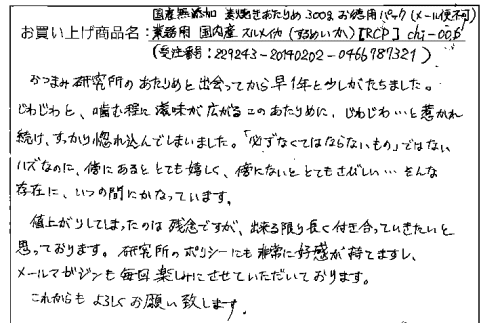 国産無添加 素焼きあたりめ 300g お徳用パック(メール便不可)
お買い上げ商品名:業務用 国内産 スルメイカ(するめいか)【RCP】chi-006
(受注番号:229243-20140202-0466787321)
おつまみ研究所のあたりめと出会ってから早1年と少しがたちました。
じわじわと、噛む程に滋味が広がるこのあたりめに、じわじわ…と惹かれ
続け、すっかり惚れ込んでしまいました。「必ずなくてはならないもの」ではない
ハズなのに、傍にあるととても嬉しく、傍にないととてもさびしい…そんな
存在に、いつの間にかなっています。
値上がりしてしまったのは残念ですが、出来る限り長く付き合っていきたいと
思っております。研究所のポリシーにも非常に好感が持てますし、
メールマガジンも毎回楽しみにさせていただいております。
これからもよろしくお願い致します。